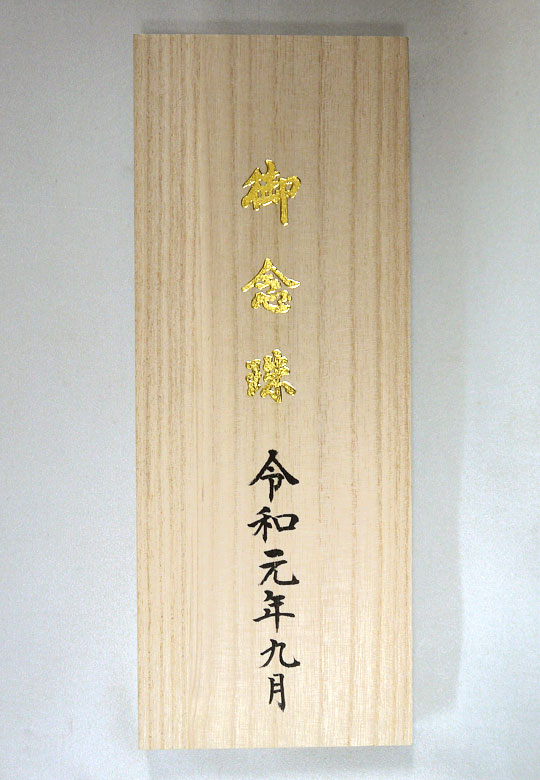 御念珠令和元年九月